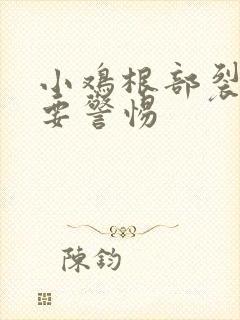 小鸡根部裂
要警惕
陳鈞